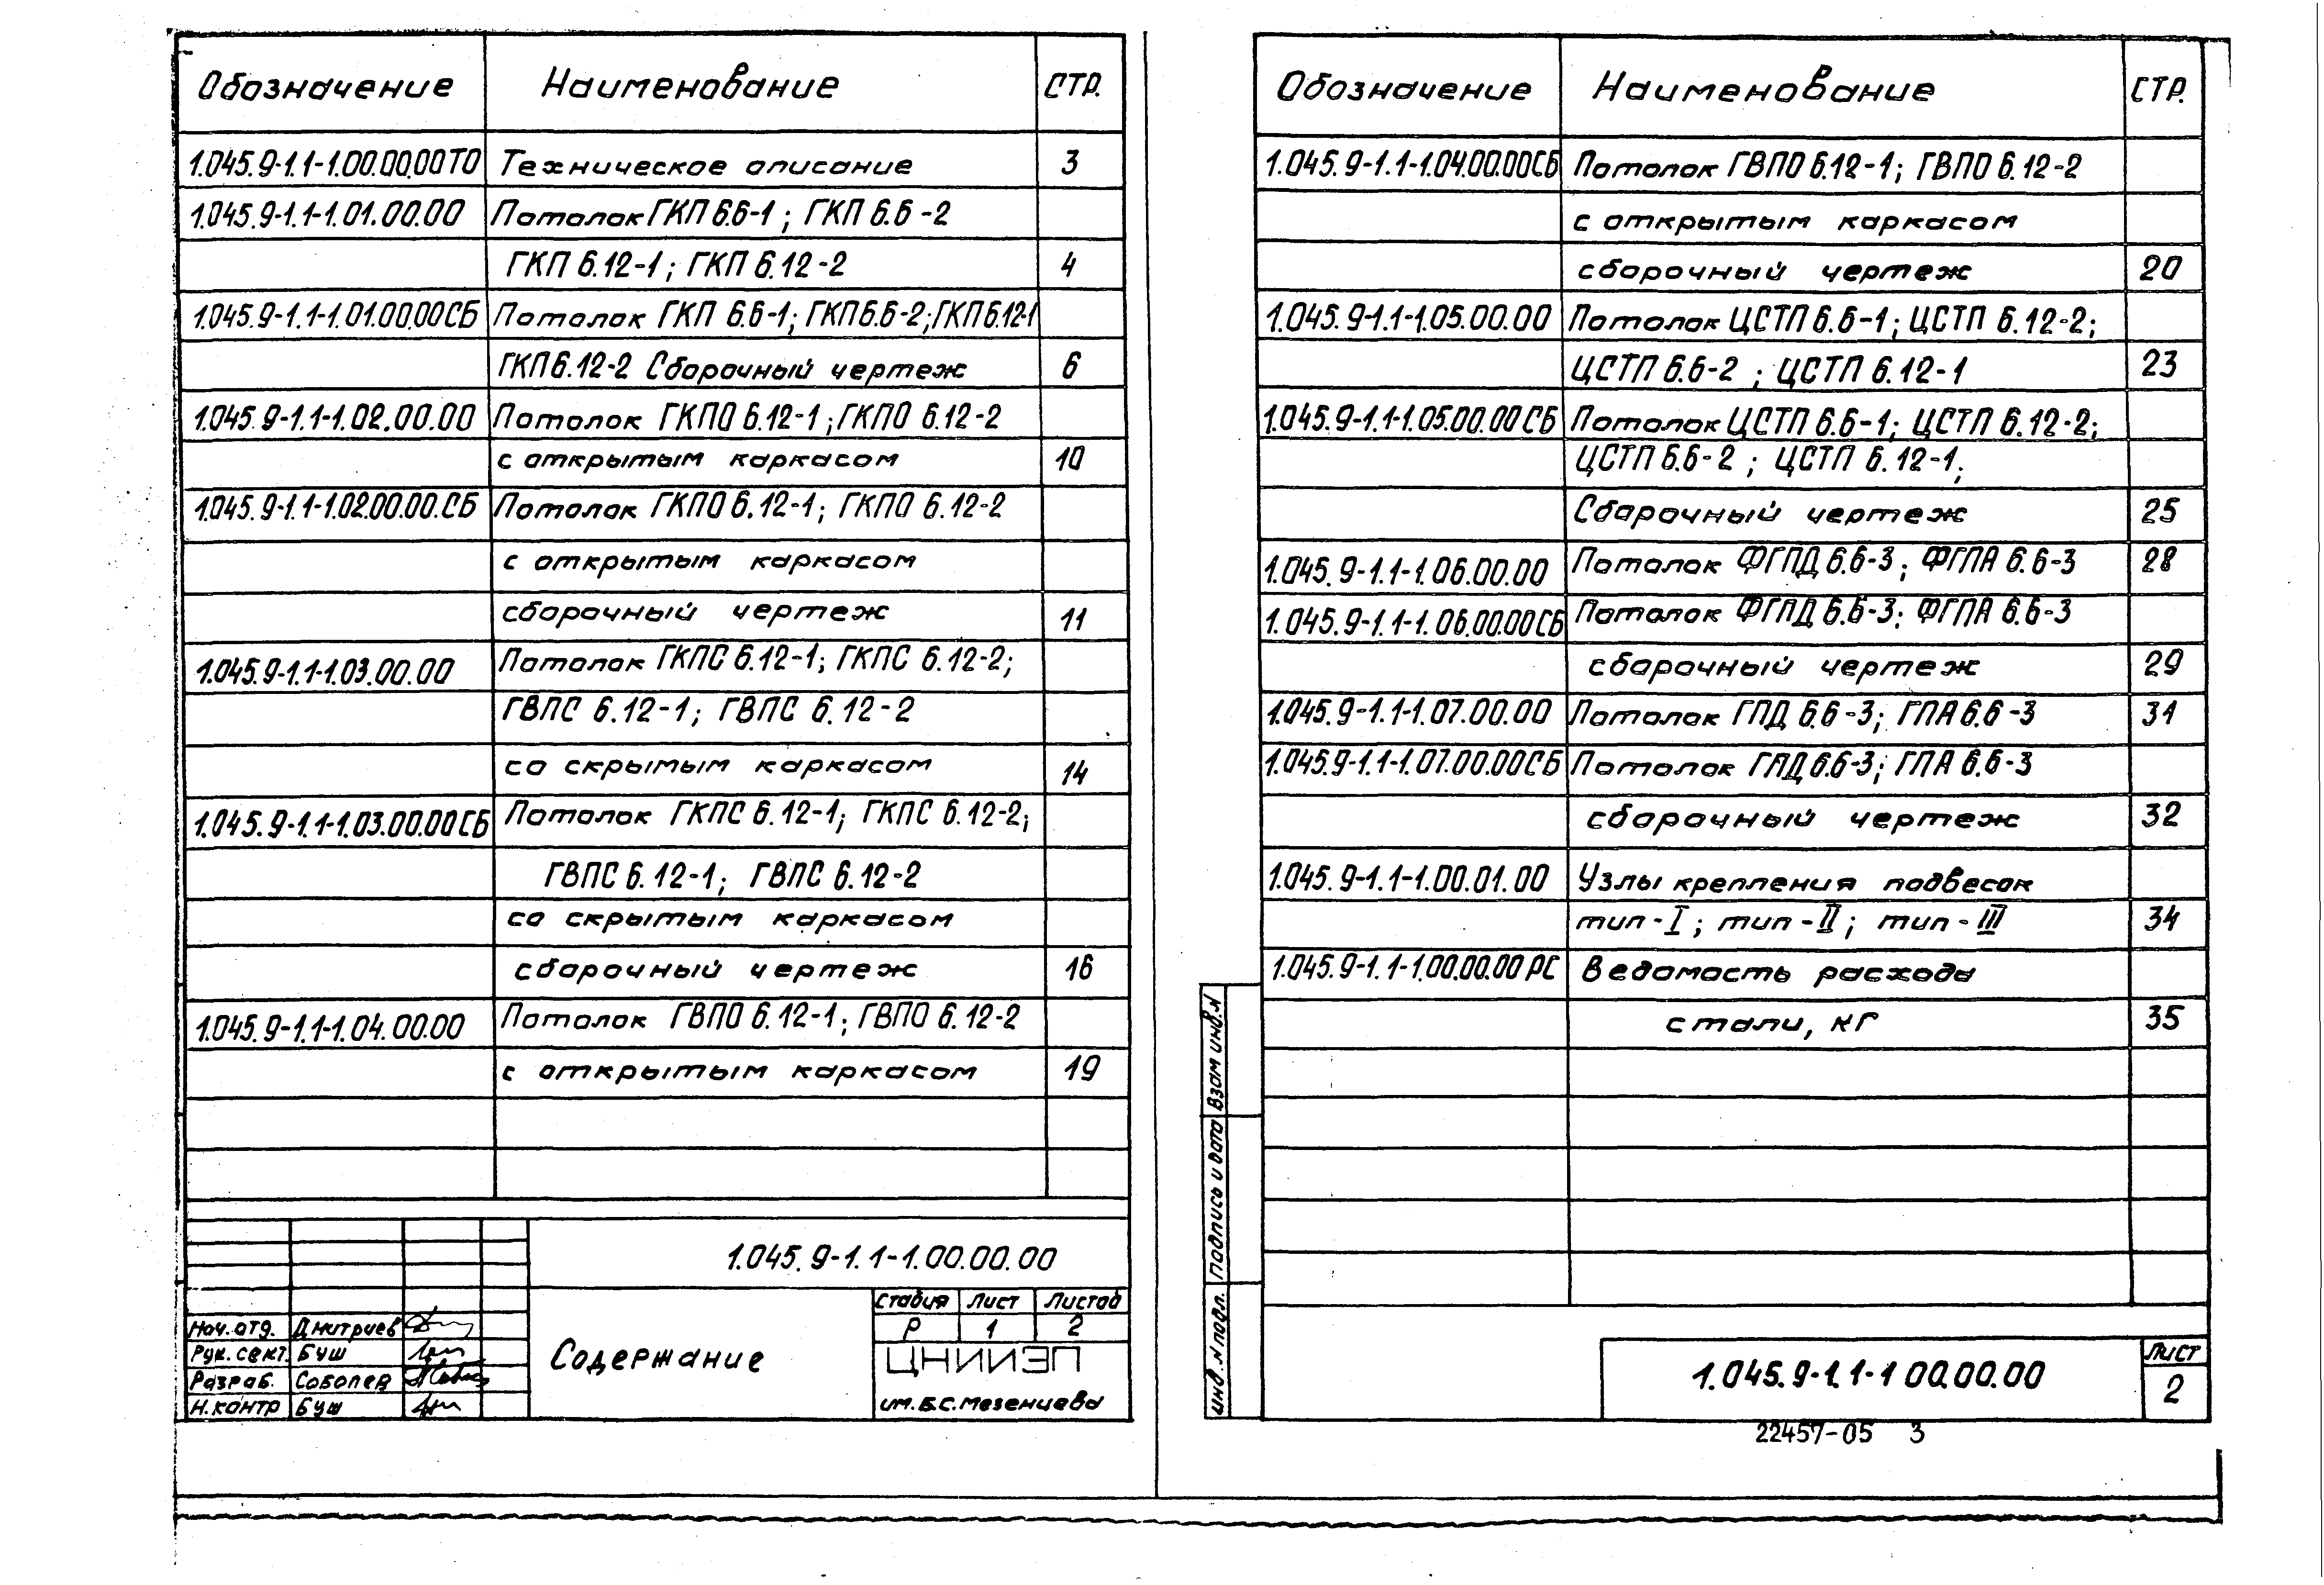 Обозначение Наименование СТР.
1.045.9-1.1-1.00.00.00ТО Техническое описание 3
1.045.9-1.1-1.01.00.00 Потолок ГКП 6.6-1; ГКП 6.6-2
ГКП 6.12-1; ГКП 6.12-2 4
1.045.9-1.1-1.01.00.00СБ Потолок ГКП 6.6-1; ГКП 6.6-2; ГКП 6.12-1
ГКП 6.12-2 Сборочный чертеж 6
1.045.9-1.1-1.02.00.00 Потолок ГКПО 6.12-1; ГКПО 6.12-2
с открытым каркасом 10
1.045.9-1.1-1.02.00.00.СБ Потолок ГКПО 6.12-1; ГКПО 6.12-2
с открытым каркасом
сборочный чертеж 11
1.045.9-1.1-1.03.00.00 Потолок ГКПС 6.12-1; ГКПС 6.12-2;
ГВПС 6.12-1; ГВПС 6.12-2
со скрытым каркасом 14
1.045.9-1.1-1.03.00.00СБ Потолок ГКПС 6.12-1; ГКПС 6.12-2;
ГВПС 6.12-1; ГВПС 6.12-2
со скрытым каркасом
сборочный чертеж 16
1.045.9-1.1-1.04.00.00 Потолок ГВПО 6.12-1; ГВПО 6.12-2
с открытым каркасом 19
1.045.9-1.1-1.00.00.00
Стадия Лист Листов
Р 1 2
Нач.отд. Дмитриев
Рук.сект. Буш
Разраб. Соболев
Н.контр Буш
Содержание
ЦНИИЭП
им. Б.С. Мезенцева
Обозначение Наименование СТР.
1.045.9-1.1-1.04.00.00СБ Потолок ГВПО 6.12-1; ГВПО 6.12-2
с открытым каркасом
сборочный чертеж 20
1.045.9-1.1-1.05.00.00 Потолок ЦСТП 6.6-1; ЦСТП 6.12-2;
ЦСТП 6.6-2; ЦСТП 6.12-1 23
1.045.9-1.1-1.05.00.00СБ Потолок ЦСТП 6.6-1; ЦСТП 6.12-2;
ЦСТП 6.6-2; ЦСТП 6.12-1;
Сборочный чертеж 25
1.045.9-1.1-1.06.00.00 Потолок ФГПД 6.6-3; ФГПА 6.6-3 28
1.045.9-1.1-1.06.00.00СБ Потолок ФГПД 6.6-3; ФГПА 6.6-3
сборочный чертеж 29
1.045.9-1.1-1.07.00.00 Потолок ГПД 6.6-3; ГПА 6.6-3 31
1.045.9-1.1-1.07.00.00СБ Потолок ГПД 6.6-3; ГПА 6.6-3
сборочный чертеж 32
1.045.9-1.1-1.00.01.00 Узлы крепления подвесок
тип-I; тип-II; тип-III 34
1.045.9-1.1-1.00.00.00 РС Ведомость расхода
стали, кг 35
Взам инв.N
Подпись и дата
инв.N подл.
1.045.9-1.1-1 00.00.00
Лист
2
22457-05 3